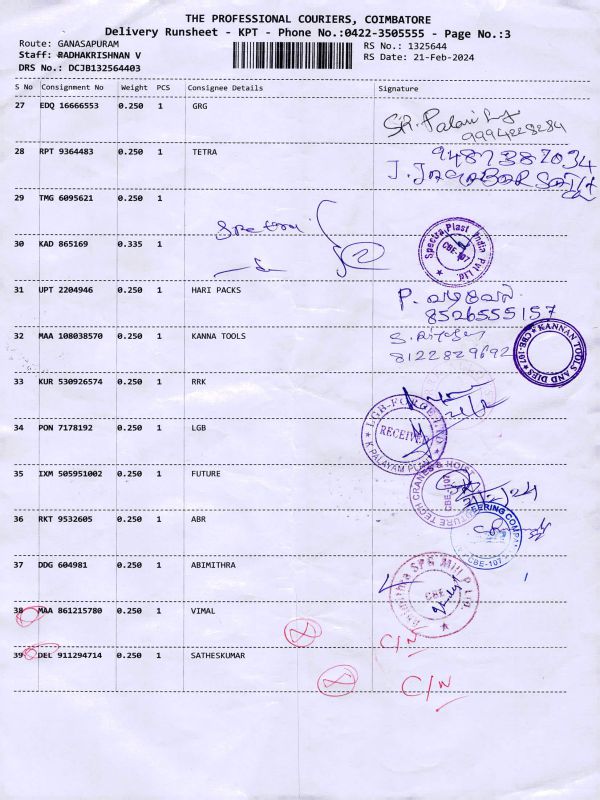 THE PROFESSIONAL COURIERS, COIMBATORE
Delivery Runsheet - KPT - Phone No.:0422-3505555 - Page No.:3
Route: GANASAPURAM
RS No.: 1325644
Staff: RADHAKRISHNAN V
RS Date: 21-Feb-2024
DRS No.: DCJB132564403
S No Consignment No Weight PCS Consignee Details Signature
27 EDQ 16666553 0.250 1 GRG
9994228284
28 RPT 9364483 0.250 1 TETRA
9487387034
J. JAGABAR
29 TMG 6095621 0.250 1
Spectra
30 KAD 865169 0.335 1
2
Spectra Plast India Pvt Ltd
CBE-107
31 UPT 2204946 0.250 1 HARI PACKS
8526555157
32 MAA 108038570 0.250 1 KANNA TOOLS
8122829692
KANNAN TOOLS AND DIES
CBE-107
33 KUR 530926574 0.250 1 RRK
34 PON 7178192 0.250 1 LGB
LGB-FORGE LTD
RECEIVED
K PALAYAM PLANT
35 IXM 505951002 0.250 1 FUTURE
FUTURE TECH CRANES & HOIST
CBE-107
36 RKT 9532605 0.250 1 ABR
CBE-107
37 DDG 604981 0.250 1 ABIMITHRA
CBE
38 MAA 861215780 0.250 1 VIMAL
C/N
39 DEL 911294714 0.250 1 SATHESKUMAR
C/N